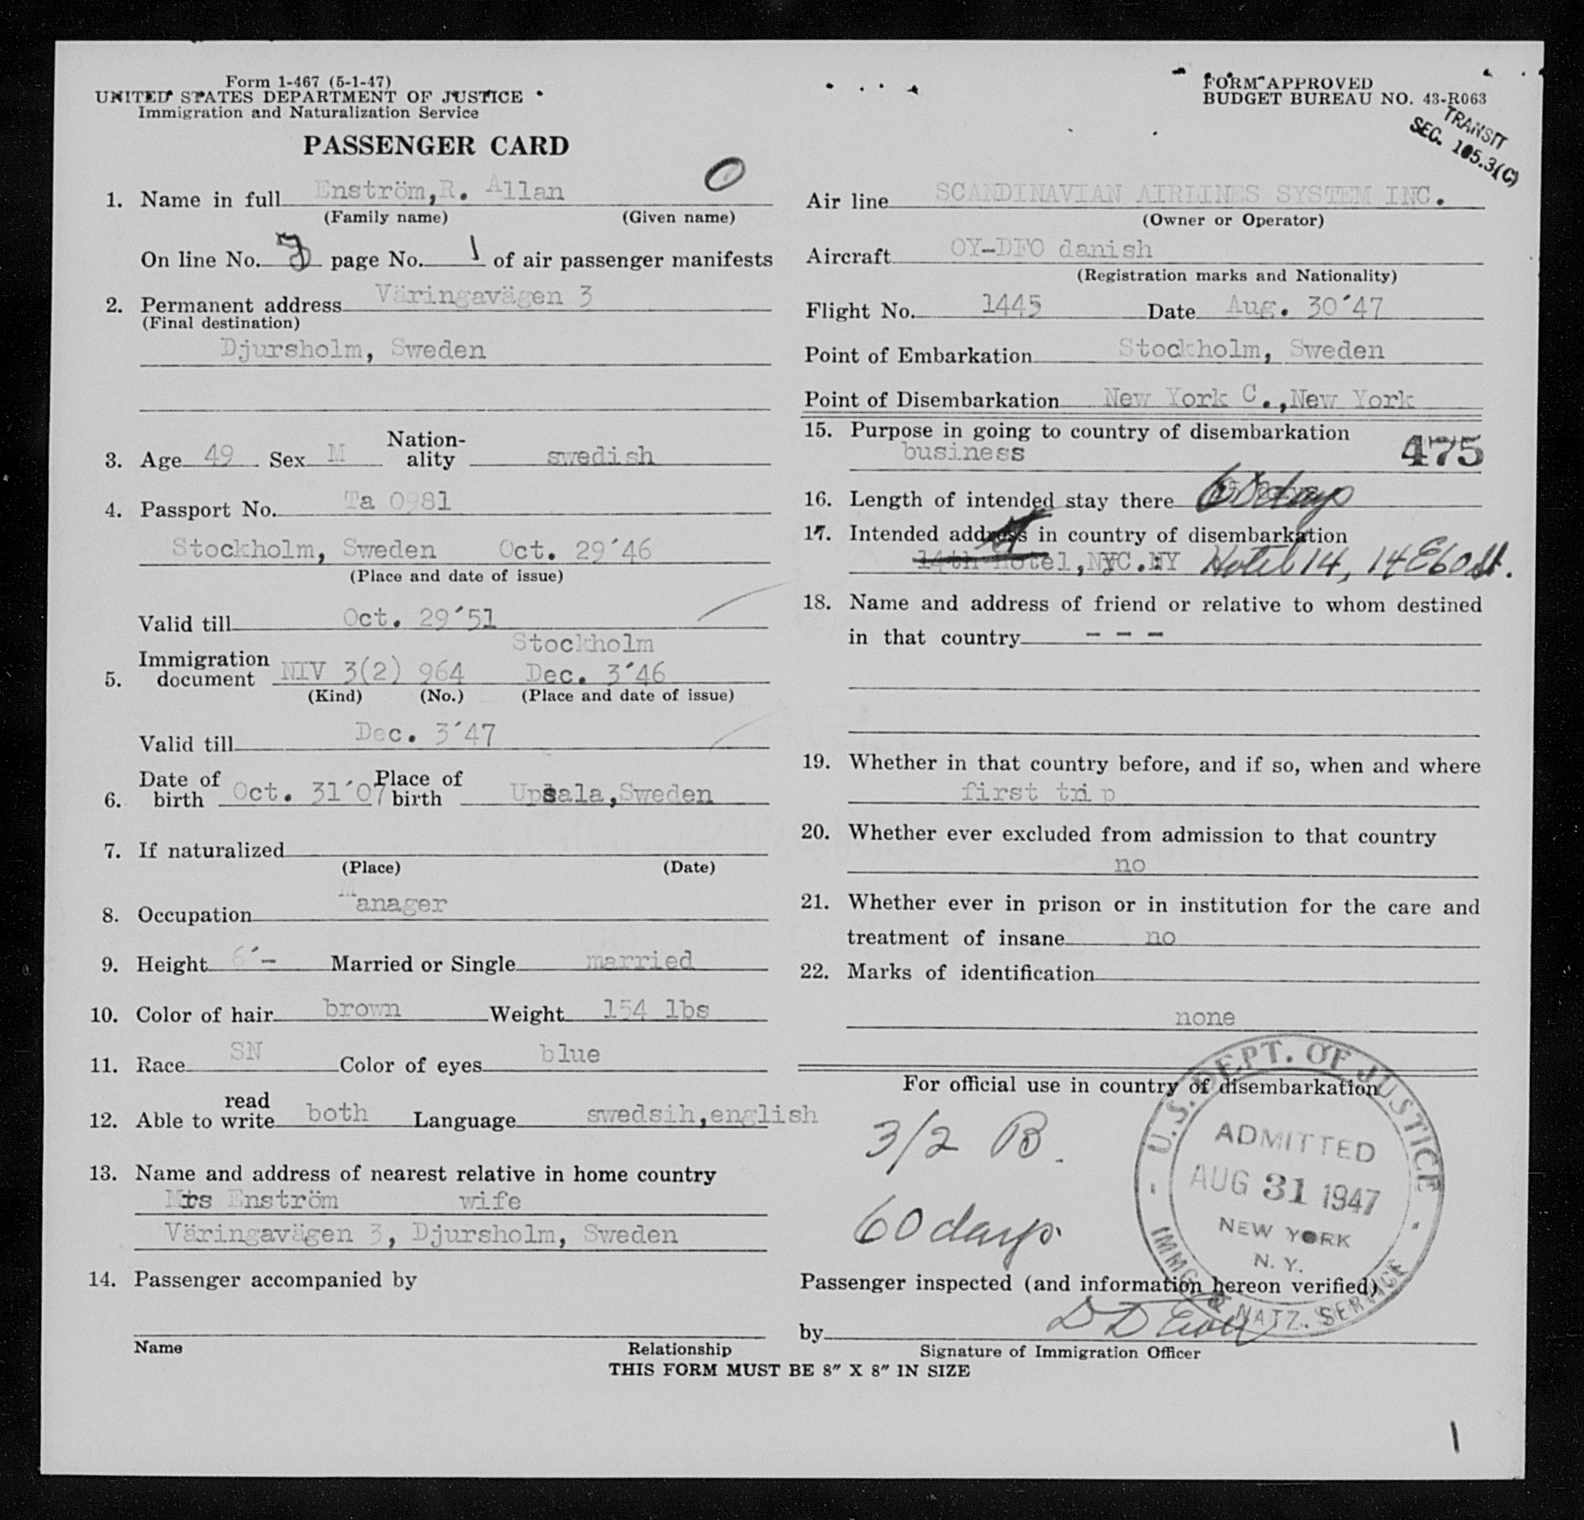 Form 1-467 (5-1-47)
UNITED STATES DEPARTMENT OF JUSTICE
Immigration and Naturalization Service
PASSENGER CARD
FORM APPROVED
BUDGET BUREAU NO. 43-R063
TRANSIT
SEC. 105.3(C)
1. Name in full Enström,R. Allan
(Family name) (Given name)
On line No. page No. 1 of air passenger manifests
2. Permanent address Väringavägen 3
(Final destination)
Djursholm, Sweden
3. Age 49 Sex M Nation-ality swedish
4. Passport No. Ta 0981
Stockholm, Sweden Oct. 29´46
(Place and date of issue)
Valid till Oct. 29´51
5. Immigration document NIV 3(2) 964 Stockholm Dec. 3´46
(Kind) (No.) (Place and date of issue)
Valid till Dec. 3´47
6. Date of birth Oct. 31´07 Place of birth Upsala,Sweden
7. If naturalized
(Place) (Date)
8. Occupation Manager
9. Height 6´- Married or Single married
10. Color of hair brown Weight 154 lbs
11. Race SN Color of eyes blue
12. Able to read write both Language swedsih,english
13. Name and address of nearest relative in home country
Mrs Enström wife
Väringavägen 3, Djursholm, Sweden
14. Passenger accompanied by
Name Relationship
Air line SCANDINAVIAN AIRLINES SYSTEM INC.
(Owner or Operator)
Aircraft OY-DFO danish
(Registration marks and Nationality)
Flight No. 1445 Date Aug. 30´47
Point of Embarkation Stockholm, Sweden
Point of Disembarkation New York C.,New York
15. Purpose in going to country of disembarkation
business 475
16. Length of intended stay there 60 days
17. Intended address in country of disembarkation
14th Hotel,NYC.NY Hotel 14, 14 E 60 St.
18. Name and address of friend or relative to whom destined
in that country - - -
19. Whether in that country before, and if so, when and where
first trip
20. Whether ever excluded from admission to that country
no
21. Whether ever in prison or in institution for the care and
treatment of insane no
22. Marks of identification
none
For official use in country of disembarkation
3/2 B.
60 days.
U.S. DEPT. OF JUSTICE
ADMITTED
AUG 31 1947
NEW YORK
N. Y.
IMMG. & NATZ. SERVICE
Passenger inspected (and information hereon verified)
by
Signature of Immigration Officer
THIS FORM MUST BE 8" X 8" IN SIZE
1